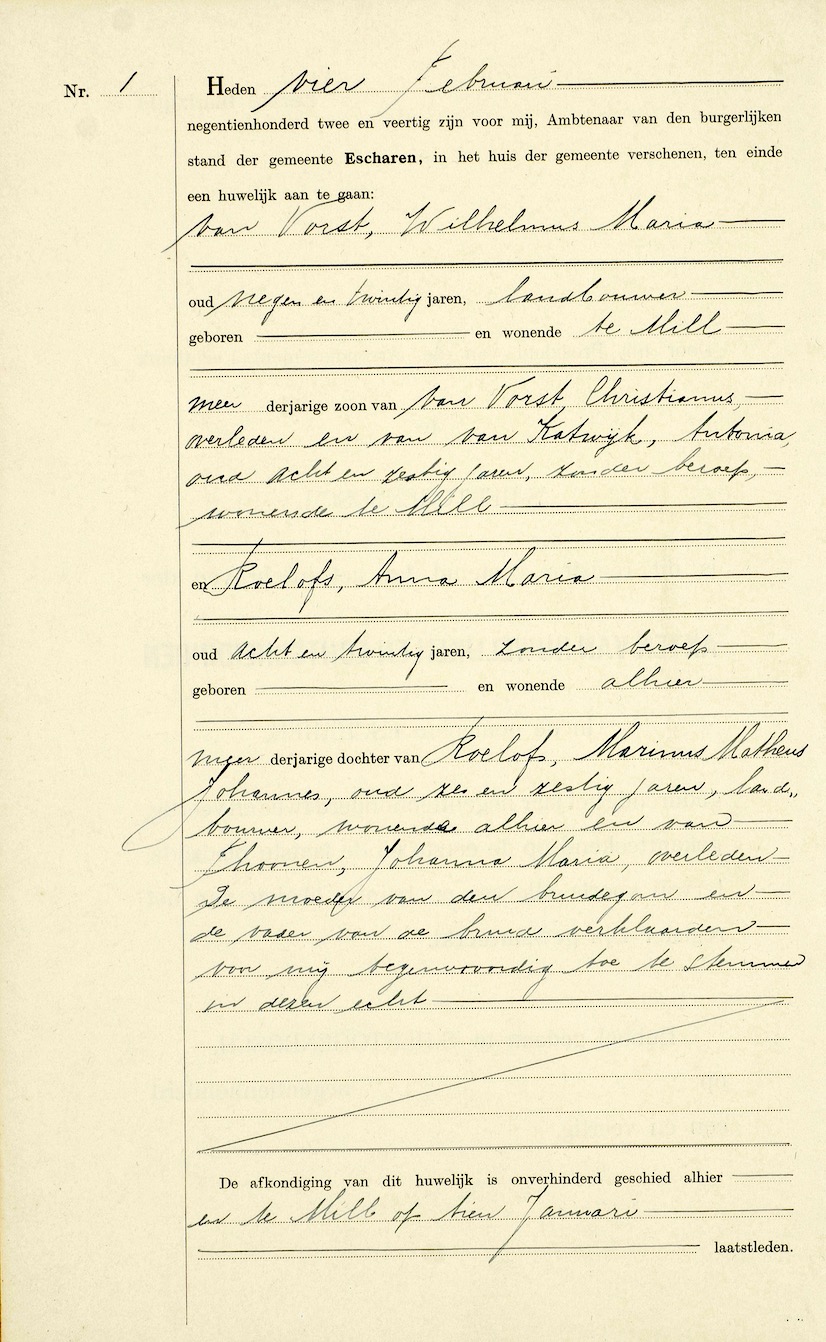 Nr. 1
Heden vier Februari
negentienhonderd twee en veertig zijn voor mij, Ambtenaar van den burgerlijken
stand der gemeente Escharen, in het huis der gemeente verschenen, ten einde
een huwelijk aan te gaan:
van Vorst, Wilhelmus Maria
oud negen en twintig jaren, landbouwer
geboren en wonende te Mill
meer derjarige zoon van van Vorst, Christianus,
overleden en van van Katwijk, Antonia,
oud acht en zestig jaren, zonder beroep,
wonende te Mill
en Roelofs, Anna Maria
oud acht en twintig jaren, zonder beroep
geboren en wonende alhier
meer derjarige dochter van Roelofs, Marinus Matheus
Johannes, oud zes en zestig jaren, land„
bouwer, wonende alhier en van
Thoonen, Johanna Maria, overleden
De moeder van den bruidegom en
de vader van de bruid verklaarden
voor mij tegenwoordig toe te stemmen
in dezen echt
De afkondiging van dit huwelijk is onverhinderd geschied alhier
en te Mill op tien Januari
laatstleden.